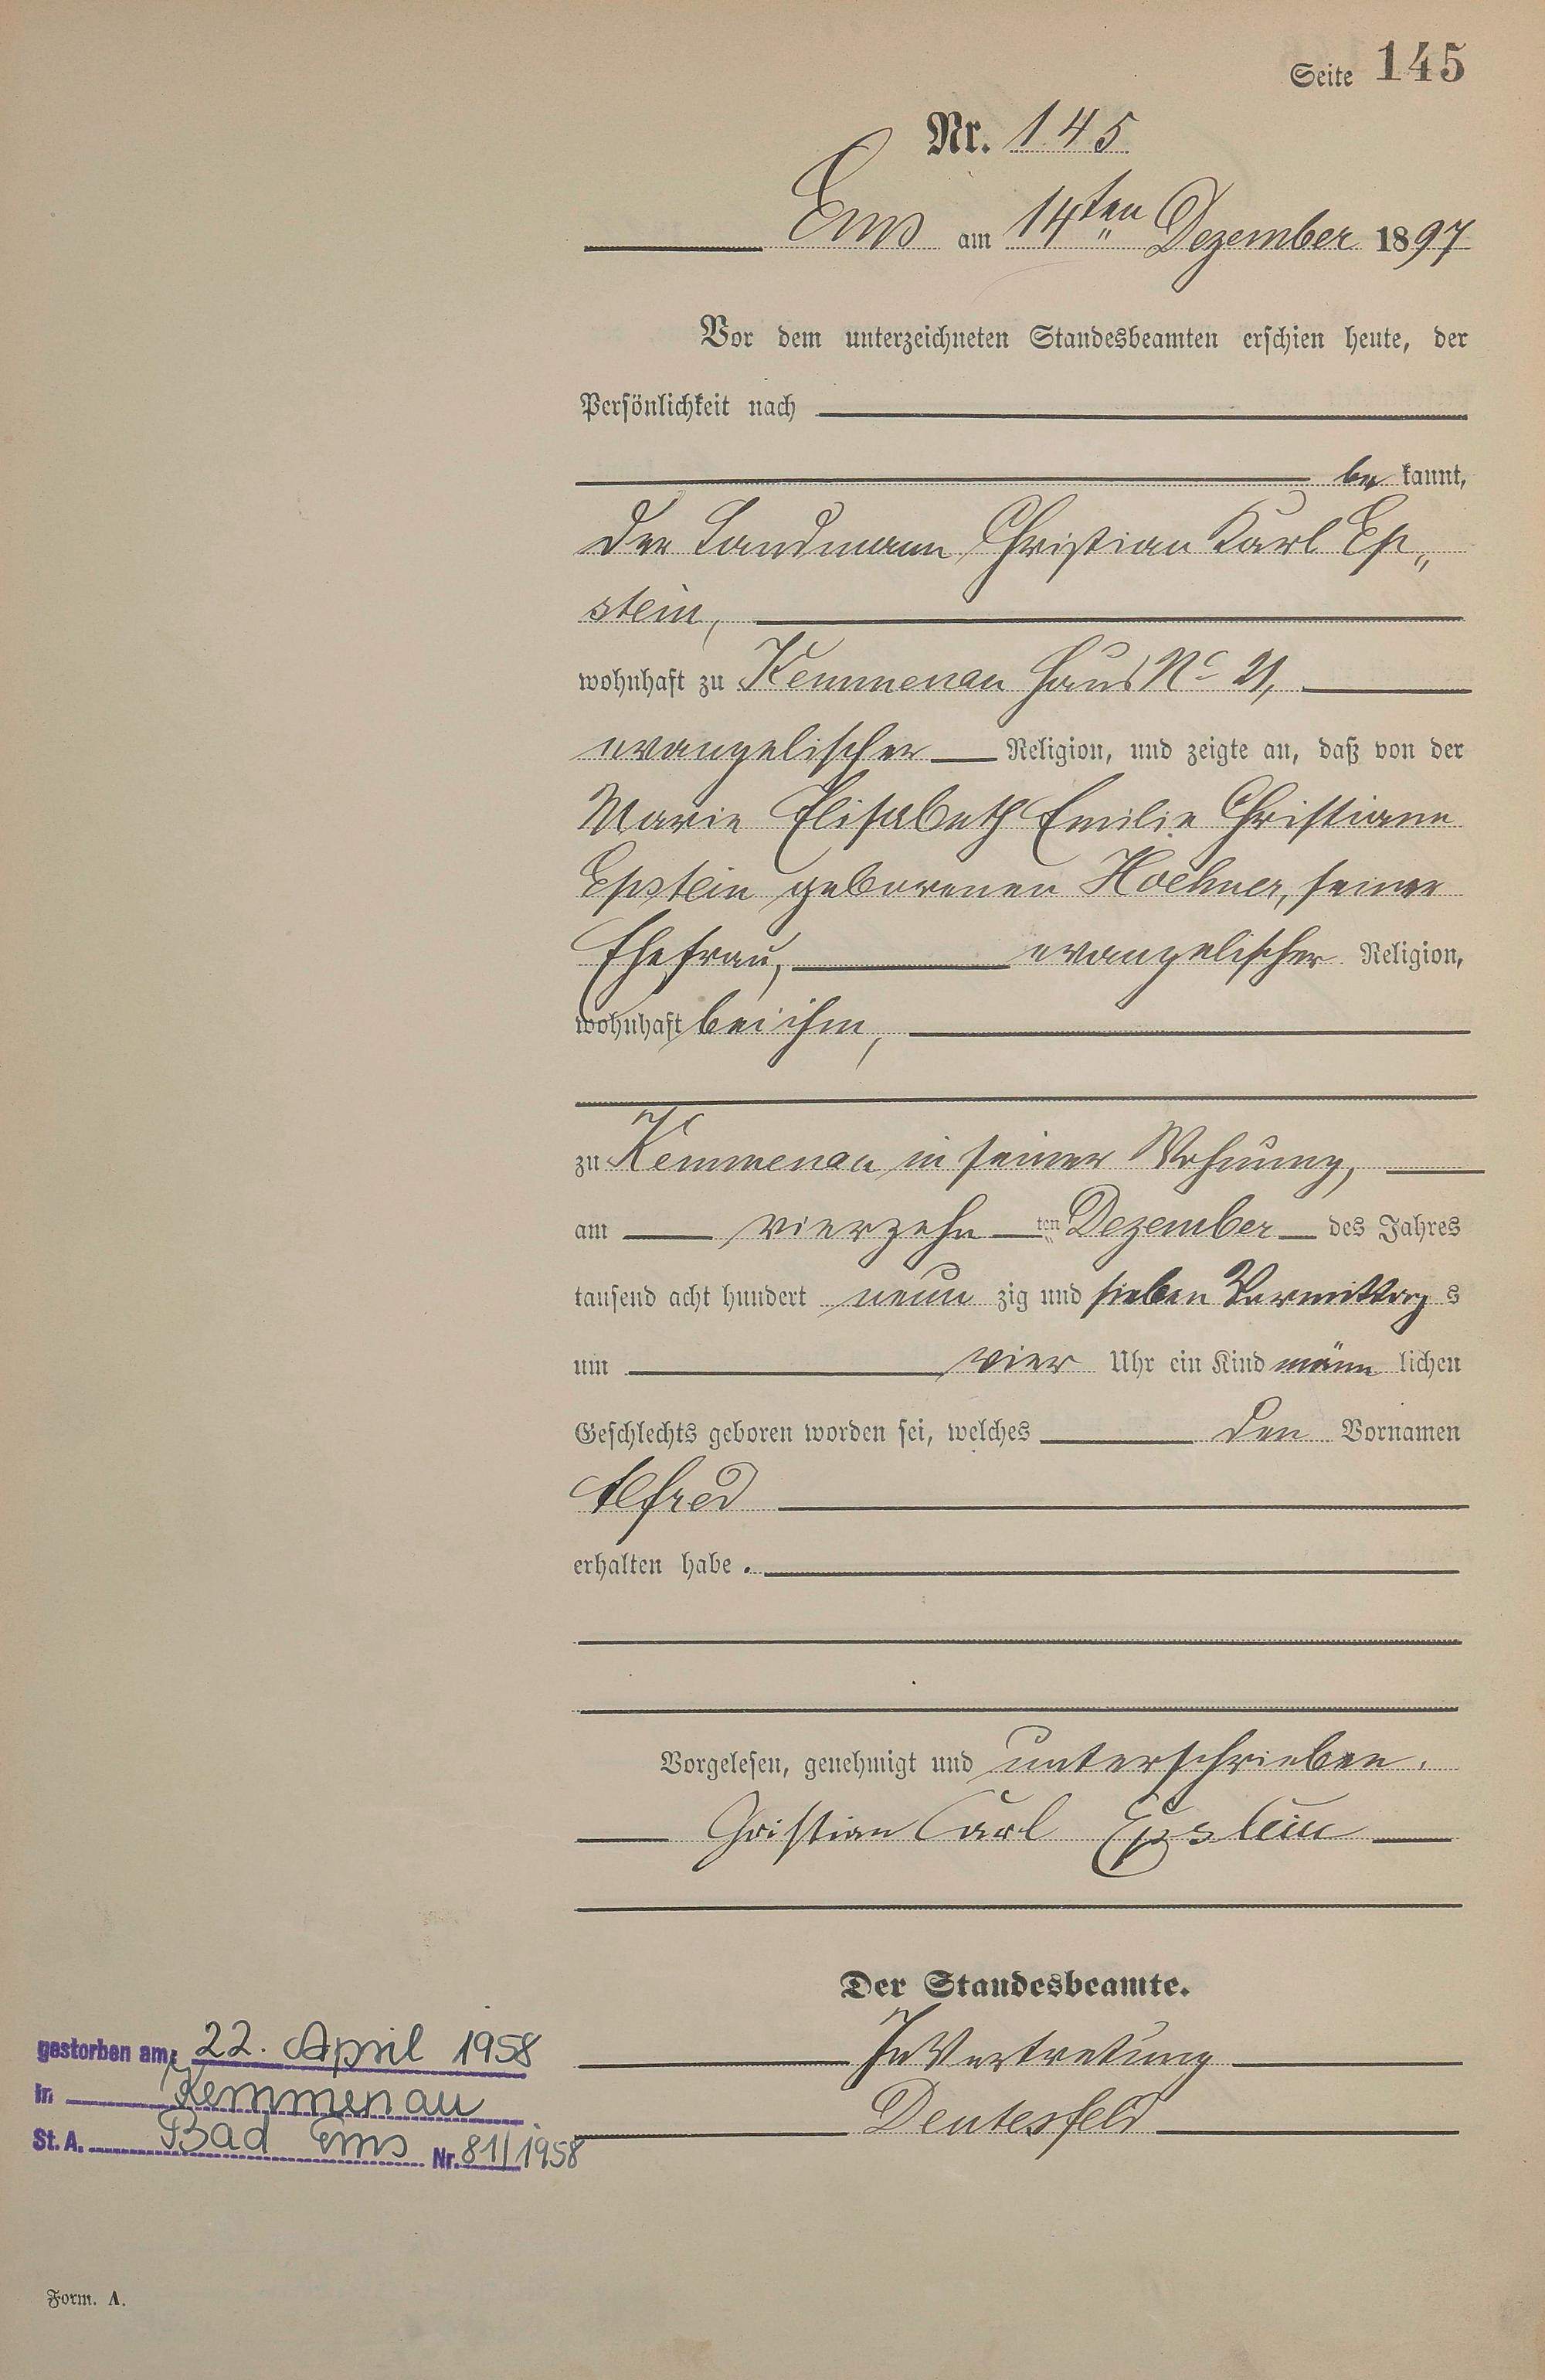 Seite 145
Nr. 145
Ems am 14ten Dezember 1897
Vor dem unterzeichneten Standesbeamten erschien heute, der
Persönlichkeit nach
be kannt,
der Landmann Christian Karl Ep„
stein,
wohnhaft zu Kemmenau Haus No 21,
evangelischer Religion, und zeigte an, daß von der
Marie Elisabeth Emilie Christiane
Epstein geborenen Hoehner, seiner
Ehefrau, evangelischer Religion,
wohnhaft bei ihm,
zu Kemmenau in seiner Wohnung,
am vierzehn ten Dezember des Jahres
tausend acht hundert neun zig und sieben Vormittag s
um vier Uhr ein Kind männ lichen
Geschlechts geboren worden sei, welches den Vornamen
Alfred
erhalten habe.
Vorgelesen, genehmigt und unterschrieben.
Christian Carl Epstein
Der Standesbeamte.
In Vertretung
Deutesfeld
gestorben am: 22. April 1958
in Kemmenau
St. A. Bad Ems Nr. 81/1958
Form. A.